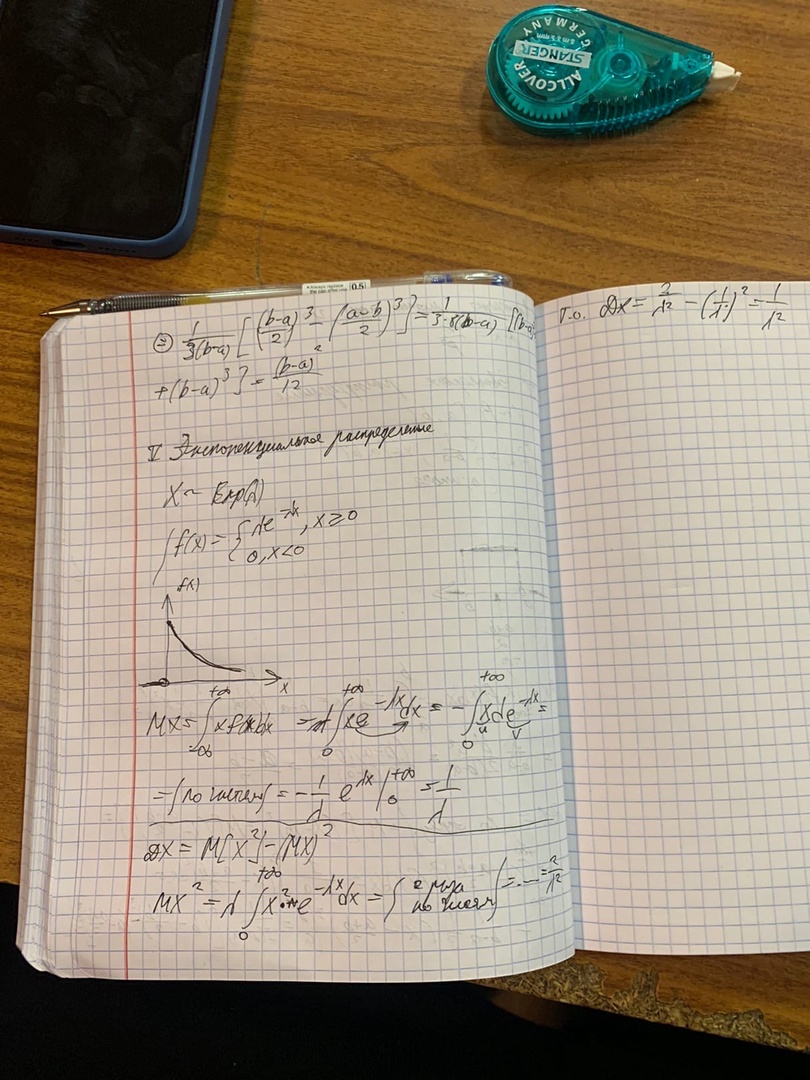 GERMANY
5 mm x 8 m
STANGER
ALLCOVER
0.5
⊜ 1/(3(b-a)) [ ((b-a)/2)^3 - ((a-b)/2)^3 ] = 1/(3·8(b-a)) [(b-a)^3
+(b-a)^3] = (b-a)^2/12
V Экспоненциальное распределение
X ~ Exp(λ)
f(x) = { λe^{-λx}, x ≥ 0
0, x<0
f(x)
x
MX = ∫_{-∞}^{+∞} x f(x)dx = λ ∫_0^{+∞} x e^{-λx}dx = - ∫_0^{+∞} x de^{-λx} =
u v
= | по частям | = - 1/λ e^{λx} |_0^{+∞} = 1/λ
DX = M[X^2] - (MX)^2
MX^2 = λ ∫_0^{+∞} x^2 · e^{-λx}dx = | 2 раза по частям | = ... = 2/λ^2
Т.о. DX = 2/λ^2 - (1/λ)^2 = 1/λ^2